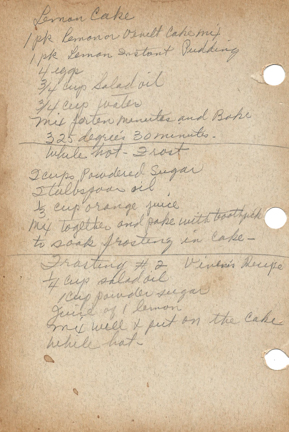 Lemon Cake
1 pk Lemon or Velvet Cake mix
1 pk Lemon Instant Pudding
4 eggs
3/4 cup Salad oil
3/4 cup water
Mix for ten minutes and Bake
325 degrees 30 minutes.
While hot - Frost
2 cups Powdered Sugar
2 tulbspoons oil
1/3 cup orange juice
Mix together and poke with toothpick
to soak frosting in cake -
Frosting # 2 Recipe
1/4 cup salad oil
1 cup powder sugar
Juice of 1 lemon
Mix well & put on the cake
while hot -